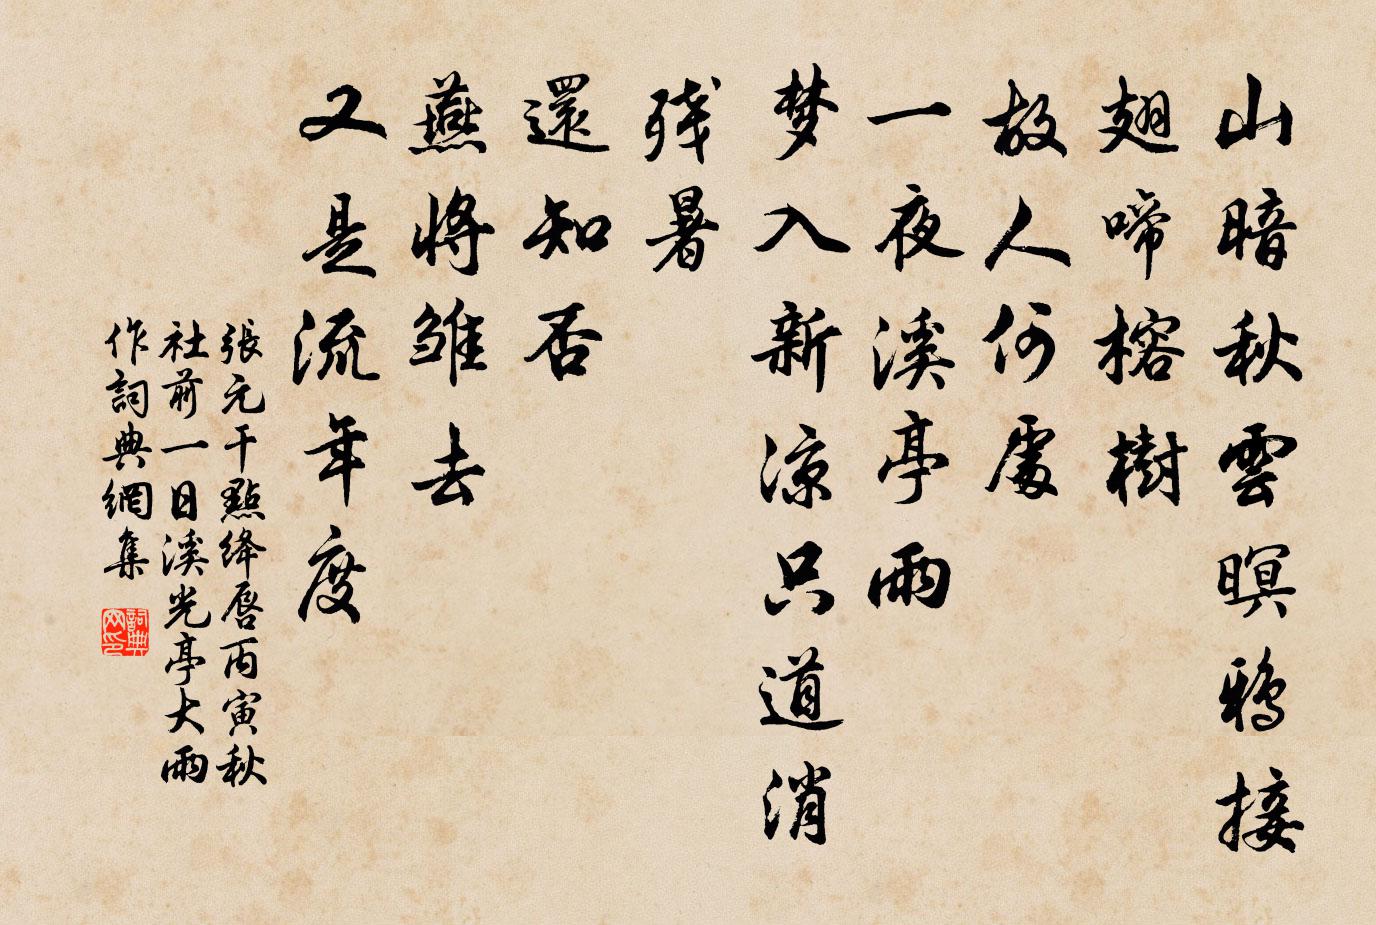 山暗秋雲暝鴉接
翅啼榕樹
故人何處
一夜溪亭雨
梦入新涼只道消
残暑
還知否
燕將雏去
又是流年度
張元干點絳唇丙寅秋
社前一日溪光亭大雨
作詞典網集
詞典
网印